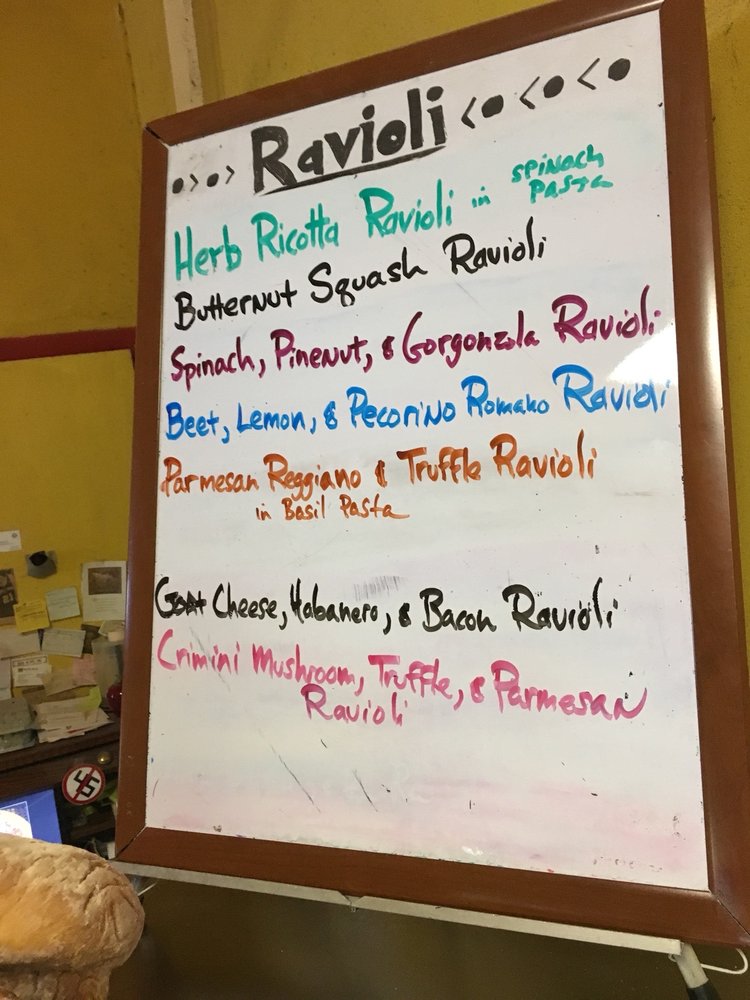 •>•> Ravioli <•<•<•
Herb Ricotta Ravioli in spinach
pasta
Butternut Squash Ravioli
Spinach, Pinenut, & Gorgonzola Ravioli
Beet, Lemon, & Pecorino Romano Ravioli
Parmesan Reggiano & Truffle Ravioli
in Basil Pasta
Goat Cheese, Habanero, & Bacon Ravioli
Crimini Mushroom, Truffle, & Parmesan
Ravioli